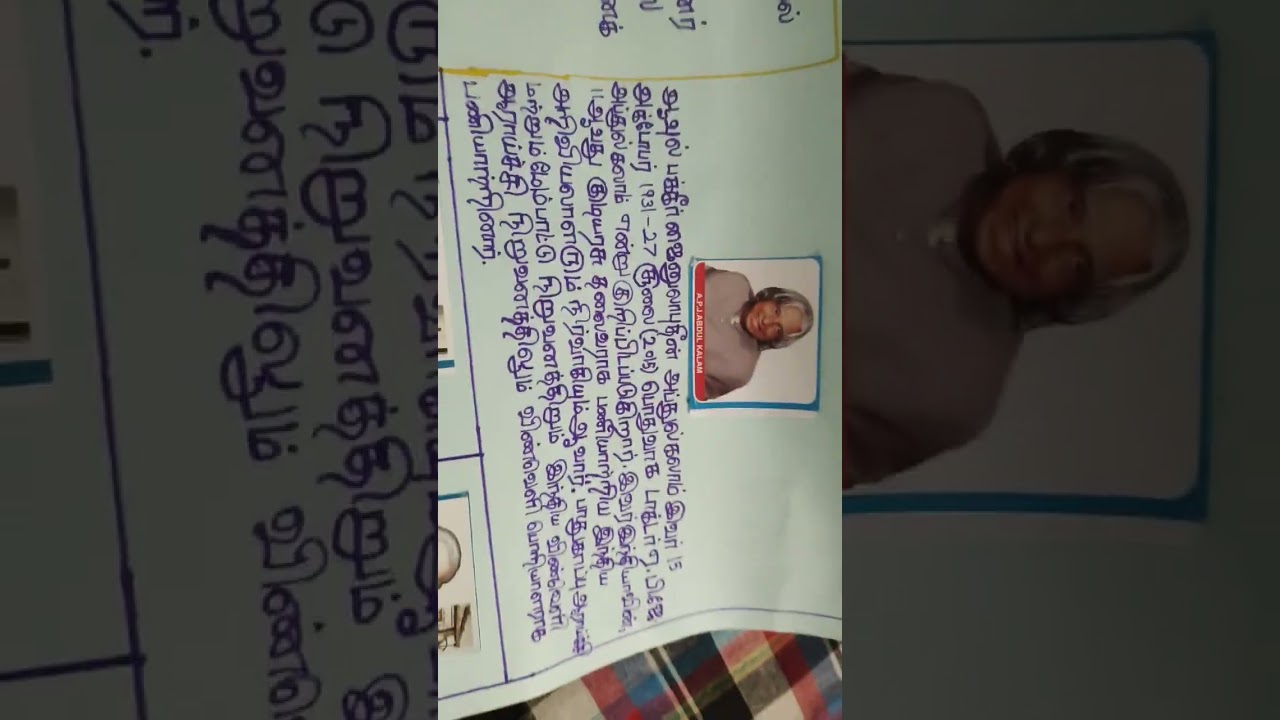 A.P.J.ABDUL KALAM
ஆவுல் பக்கீர் ஜைனுலாபுதீன் அப்துல்கலாம் இவர் 15
அக்டோபர் 1931-27 சூலை (2015) பொதுவாக டாக்டர் ஏ.பி.ஜே
அப்துல்கலாம் என்று குறிப்பிடப்படுகிறார். இவர் இந்தியாவின்
11ஆவது குடியரசு தலைவராக பணியாற்றிய இந்திய
அறிவியலாளரும் நிர்வாகியும் ஆவார். பாதுகாப்பு ஆராய்ச்சி
மற்றும் மேம்பாட்டு நிறுவனத்திலும் இந்திய விண்வெளி
ஆராய்ச்சி நிறுவனத்திலும் விண்வெளி பொறியாளராக
பணியாற்றினார்.